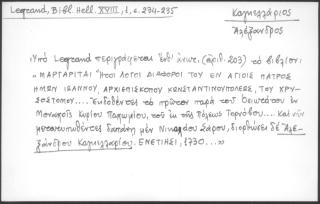 Legrand, Bibl. Hell. XVIII, 1, σ. 234-235
Καγκελλάριος
Ἀλέξανδρος
Ὑπὸ Legrand περιγράφεται ἔνθ' ἀνωτ. (ἀριθ. 203) τὸ βιβλίον:
« ΜΑΡΓΑΡΙΤΑΙ Ἤτοι ΛΟΓΟΙ ΔΙΑΦΟΡΟΙ ΤΟΥ ΕΝ ΑΓΙΟΙΣ ΠΑΤΡΟΣ
ΗΜΩΝ ΙΩΑΝΝΟΥ, ΑΡΧΙΕΠΙΣΚΟΠΟΥ ΚΩΝΣΤΑΝΤΙΝΟΥΠΟΛΕΩΣ, ΤΟΥ ΧΡΥ-
ΣΟΣΤΟΜΟΥ... Ἐκδοθέντες τὸ πρῶτον παρὰ τοῦ ὁσιωτάτου ἐν
Μοναχοῖς Κυρίου Παχωμίου, τοῦ ἐκ τῆς Πόλεως Τορνόβου... Καὶ νῦν
μετατυπωθέντες δαπάνῃ μὲν Νικολάου Σάρου, διορθώσει δὲ Ἀλε-
ξάνδρου Καγκελλαρίου. ΕΝΕΤΙΗΣΙ, 1730... »